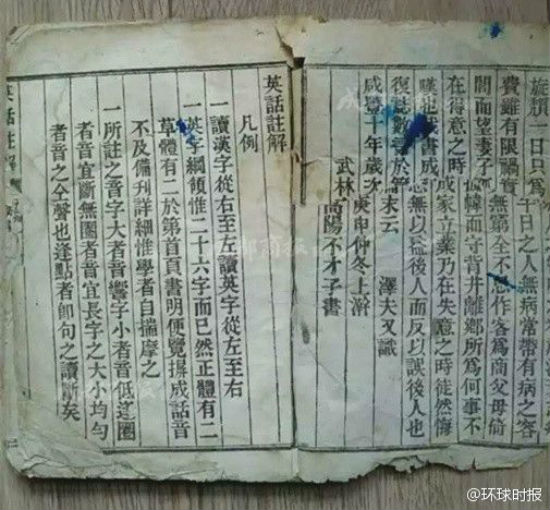 日只爲午日之人無病常帶有病之容
費雖有限禍實無窮全不思作客爲商父母倚
閭而望妻子幃而守背井離鄉所爲何事不
在得意之時成家立業乃在失意之時徒然悔
嘆也書成恐無以益後人而反以誤後人也
復誌數言於末云 澤夫又識
咸豐十年歲次庚申仲冬上澣
武林高陽不才子書
英話註解
凡例
一讀漢字從右至左讀英字從左至右
一英字綱領惟二十六字而已然正體有二
草體有二於第首頁書明便覽成話音
不及備刊詳細惟學者自揣摩之
一所註之音字大者音響字小者音低逢圈
者音宜斷無圈者音宜長字之大小均勻
者音之令聲也逢點者卽句之讀斷矣
英話註解
@环球时报